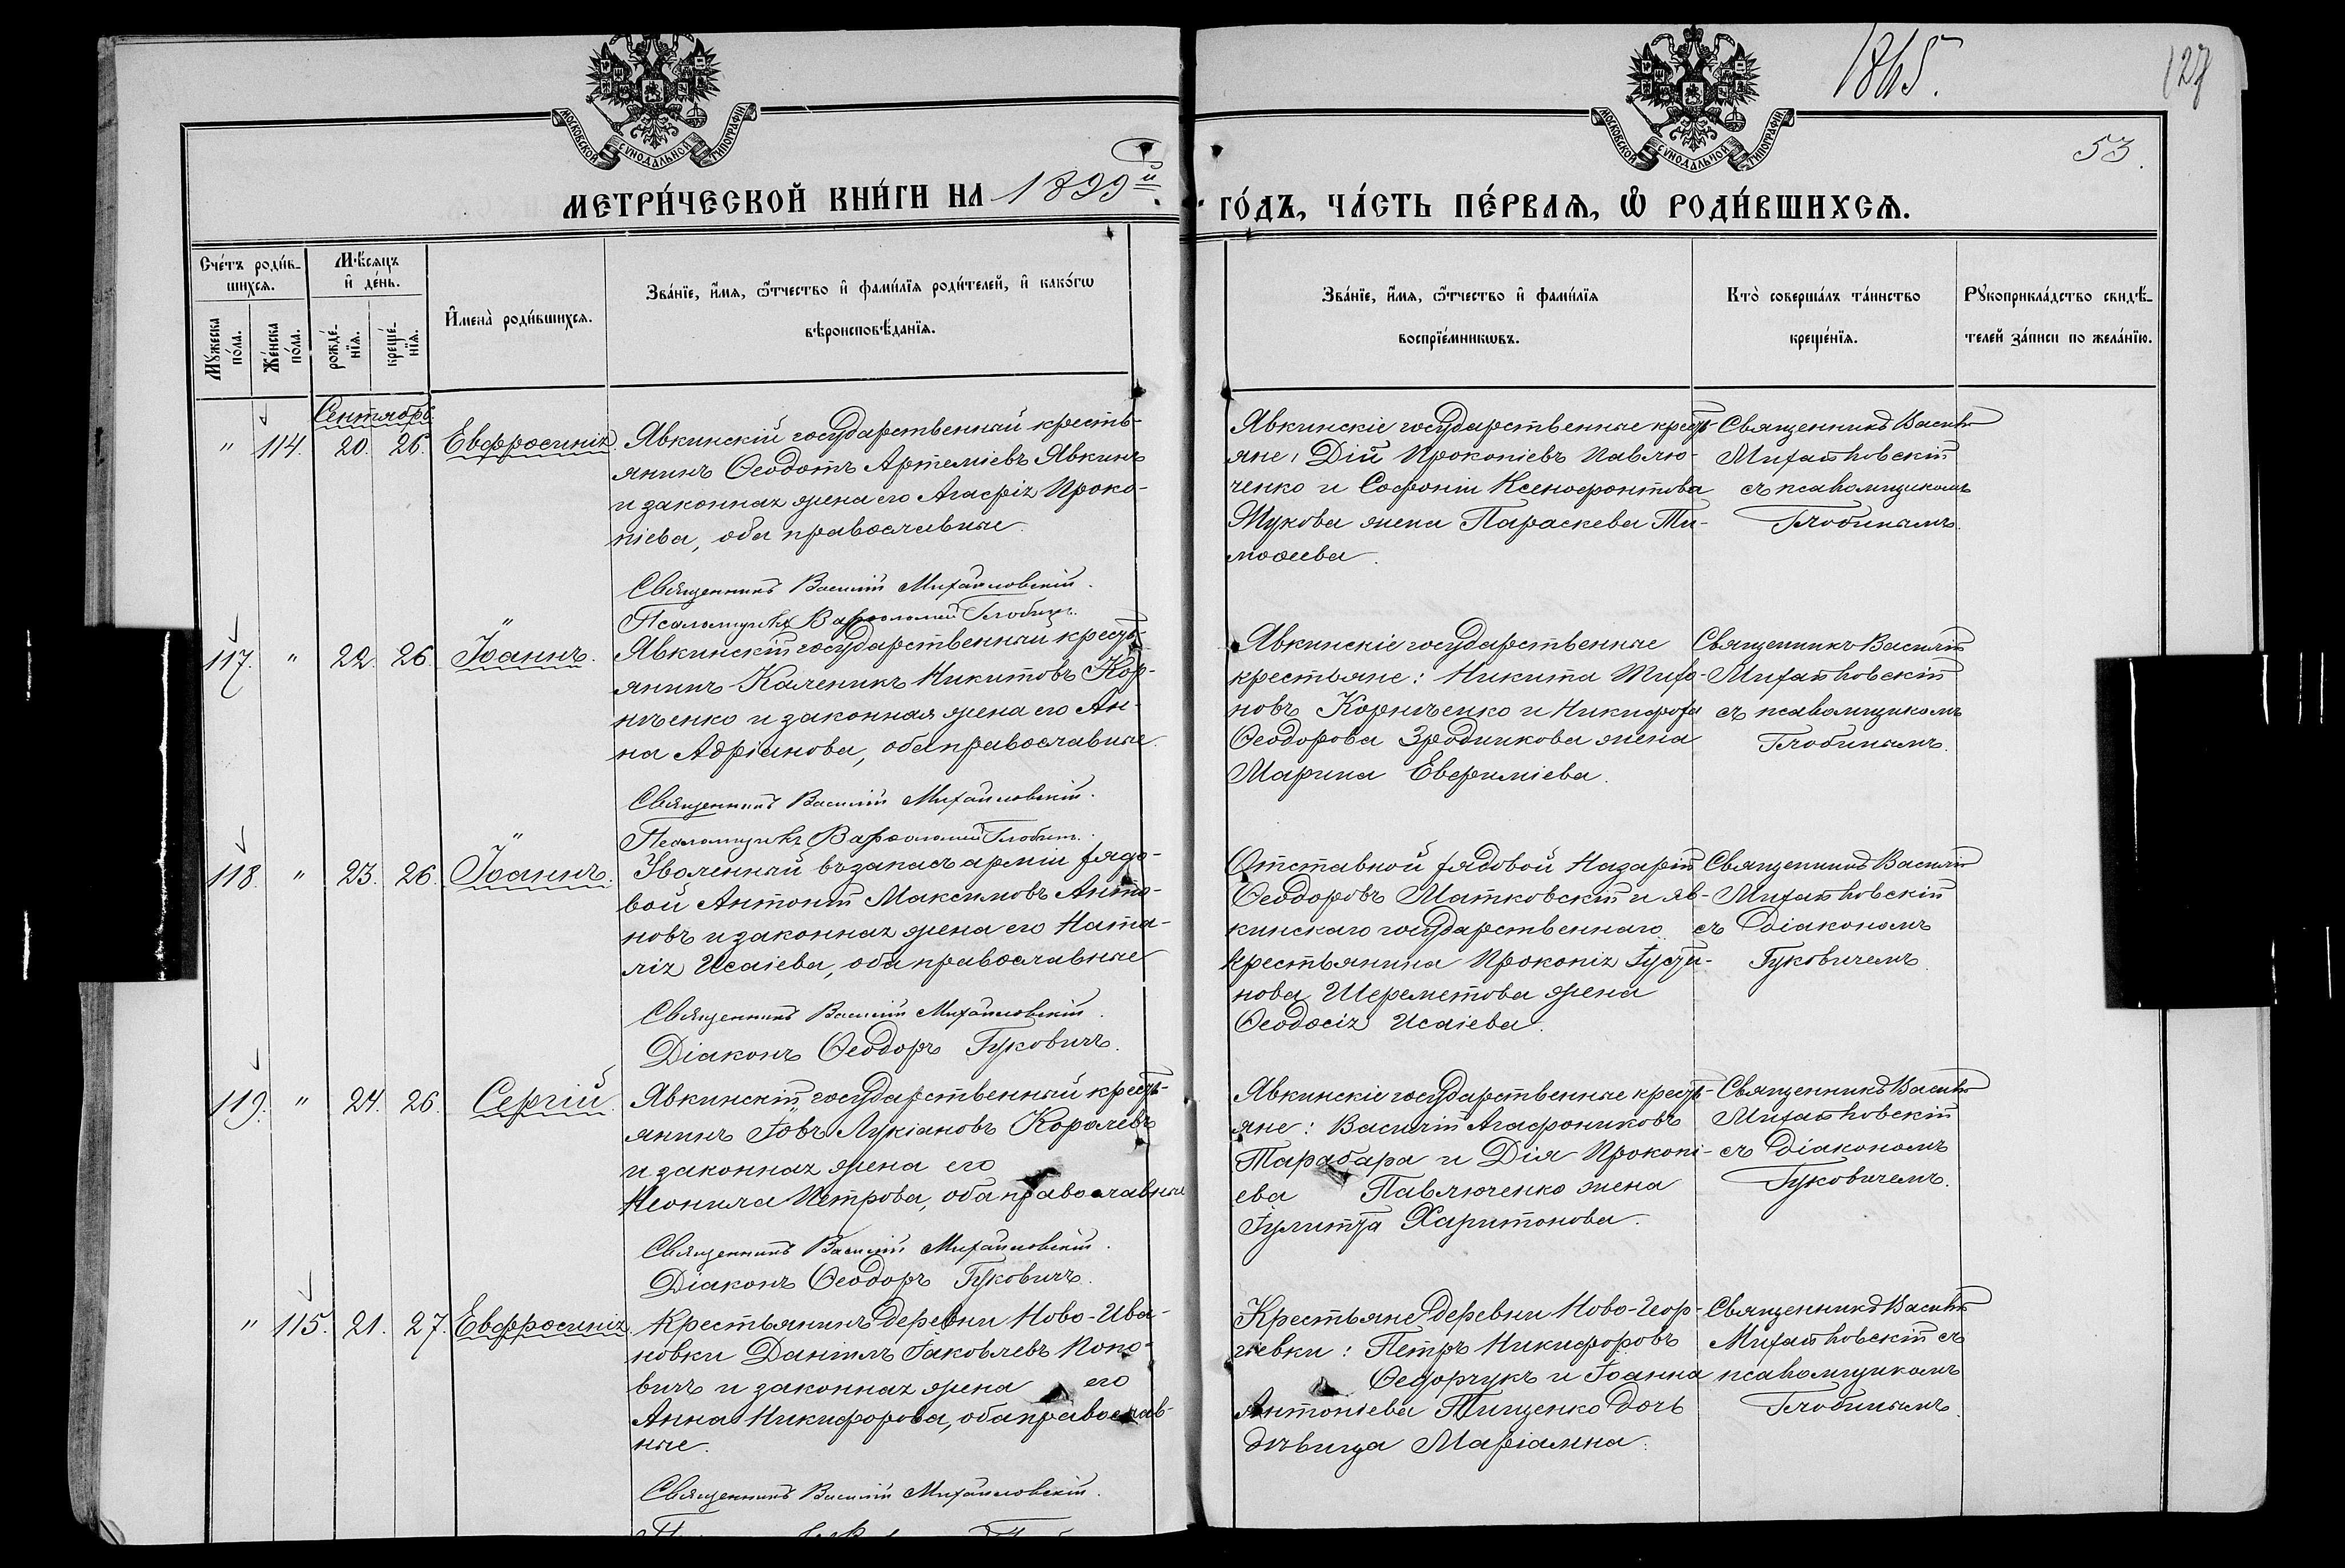 1865.
127
53.
МОСКОВСКОЙ СѴНОДАЛЬНОЙ ТИПОГРАФІИ
МОСКОВСКОЙ СѴНОДАЛЬНОЙ ТИПОГРАФІИ
МЕТРИ́ЧЕСКОЙ КНИ́ГИ НА 1899й ГО́ДЪ, ЧА́СТЬ ПЕ́РВАѦ, Ѽ РОДИ́ВШИХСѦ.
Сче́тъ роди́в-
шихсѧ.
Мꙋ́жеска
по́ла.
Же́нска
по́ла.
Мѣ́сѧцъ
и҆ де́нь.
рожде́-
нїѧ.
креще́-
нїѧ.
И҆мена̀ роди́вшихсѧ.
Зва́нїе, и҆́мѧ, ѻ҆́тчество и҆ фами́лїѧ роди́телей, и҆ како́гѡ
вѣроисповѣ́данїѧ.
Зва́нїе, и҆́мѧ, ѻ҆́тчество и҆ фами́лїѧ
воспрїе́мникѡвъ.
Кто̀ соверша́лъ та́инство
креще́нїѧ.
Рꙋкоприкла́дство свидѣ́-
телей за́писи по жела́нїю.
Сентябрь
" 114. 20. 26. Евфросинія
Явкинскій государственный кресть-
янинъ Ѳеодотъ Артеміевъ Явкинъ
и законная жена его Агафія Проко-
піева, оба православные.
Священникъ Василій Михайловскій.
Псаломщикъ Варѳоломей Глобинъ.
Явкинскіе государственные кресть-
яне, Дій Прокопіевъ Павлю-
ченко и Софонія Ксенофонтова
Жукова жена Параскева Ти-
моѳеева.
Священникъ Василій
Михайловскій
съ псаломщикомъ
Глобинымъ.
117. " 22. 26. Іоаннъ.
Явкинскій государственный кресть-
янинъ Каленикъ Никитовъ Кор-
ніенко и законная жена его Ан-
на Адріанова, оба православные.
Священникъ Василій Михайловскій.
Псаломщикъ Варѳоломей Глобинъ.
Явкинскіе государственные
крестьяне: Никита Тифо-
новъ Корніенко и Никифора
Ѳеодорова Зродникова жена
Марина Евфиміева.
Священникъ Василій
Михайловскій
съ псаломщикомъ
Глобинымъ.
118. " 23. 26. Іоаннъ.
Уволенный въ запасъ арміи рядо-
вой Антоній Максимовъ Анто-
новъ и законная жена его Ната-
лія Исаіева, оба православные
Священникъ Василій Михайловскій.
Діаконъ Ѳеодоръ Гуковичъ.
Отставной рядовой Назарій
Ѳеодоровъ Матковскій и яв-
кинскаго государственнаго
крестьянина Прокопія Іусти-
нова Шереметова жена
Ѳеодосія Исаіева.
Священникъ Василій
Михайловскій
съ Діакономъ
Гуковичемъ.
119. " 24. 26. Сергій
Явкинскій государственный кресть-
янинъ Іовъ Лукіановъ Королевъ
и законная жена его
Неонила Петрова, оба православные
Священникъ Василій Михайловскій.
Діаконъ Ѳеодоръ Гуковичъ.
Явкинскіе государственные кресть-
яне: Василій Агафониковъ
Тарабара и Дія Прокопі-
ева Павлюченко жена
Іулитта Харитонова.
Священникъ Василій
Михайловскій
съ Діакономъ
Гуковичемъ.
" 115. 21. 27. Евфросинія
Крестьянинъ деревни Ново-Ива-
новки Даніилъ Іаковлевъ Попо-
вичъ и законная жена его
Анна Никифорова, оба православ-
ные.
Священникъ Василій Михайловскій.
Крестьяне деревни Ново-Геор-
гіевки: Петръ Никифоровъ
Ѳедорчукъ и Іоанна
Антоніева Тищенко дочь
дѣвица Маріамна.
Священникъ Василій
Михайловскій съ
псаломщикомъ
Глобинымъ.